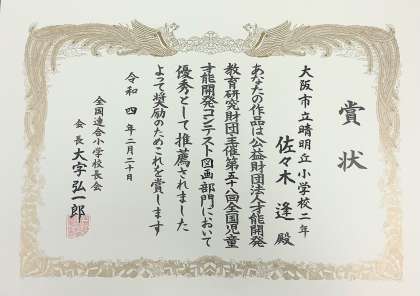 賞状
大阪市立晴明丘小学校二年
佐々木逢殿
あなたの作品は公益財団法人才能開発
教育研究財団主催第五十八回全国児童
才能開発コンテスト図画部門において
優秀として推薦されました
よって奨励のためこれを賞します
令和四年二月二十日
全国連合小学校長会
会長大字弘一郎